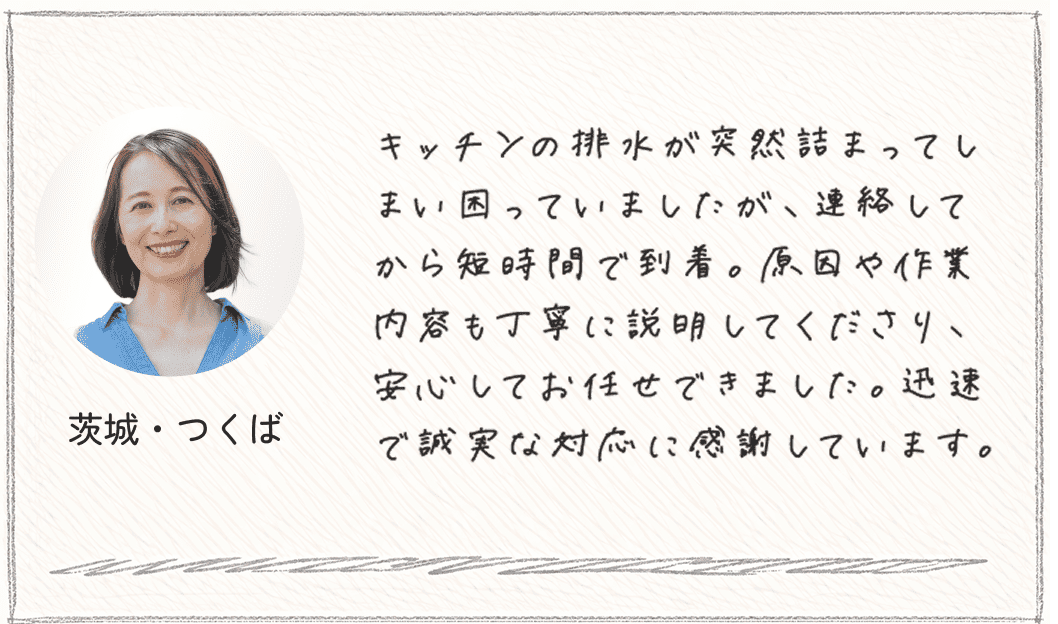 キッチンの排水が突然詰まってし
まい困っていましたが、連絡して
から短時間で到着。原因や作業
内容も丁寧に説明してくださり、
安心してお任せできました。迅速
で誠実な対応に感謝しています。
茨城・つくば